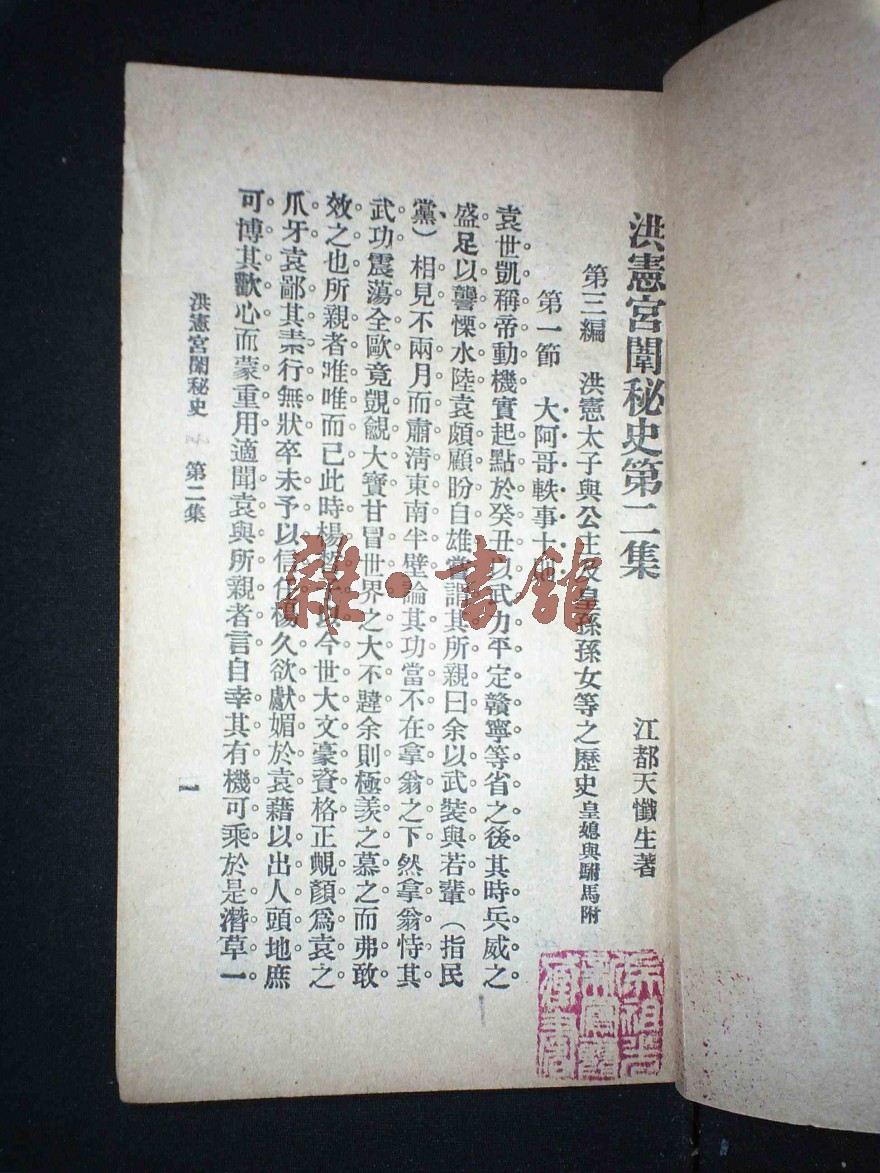 洪憲宮闈秘史第二集
江都天懺生著
第三編 洪憲太子與公主及皇孫孫女等之歷史皇媳與駙馬附
第一節 大阿哥軼事十則
袁世凱稱帝動機實起點於癸丑以武力平定贛寧等省之後其時兵威之
盛足以讋慄水陸袁頗顧盼自雄嘗謂其所親曰余以武裝與若輩（指民
黨）相見不兩月而肅清東南半壁論其功當不在拿翁之下然拿翁恃其
武功震蕩全歐竟覬覦大寶甘冒世界之大不韙余則極羨之慕之而弗敢
效之也所親者唯唯而已此時楊 以今世大文豪資格正覥顏爲袁之
爪牙袁鄙其素行無狀卒未予以信任楊久欲獻媚於袁藉以出人頭地庶
可博其歡心而蒙重用適聞袁與所親者言自幸其有機可乘於是潛草一
洪憲宮闈秘史 第二集
一
雜·書館